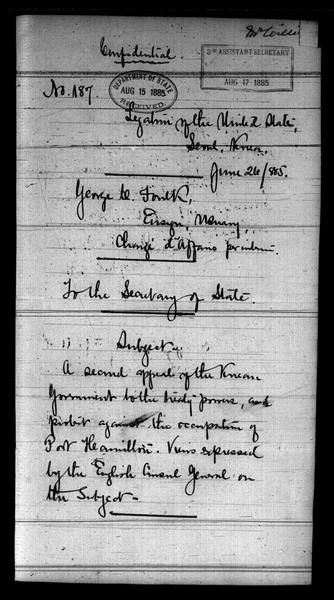 Mr Willi
Confidential.
3RD ASSISTANT SECRETARY
AUG 17 1885
No. 187.
DEPARTMENT OF STATE
AUG 15 1885
RECEIVED
Legation of the United States,
Seoul, Korea,
June 26/885.
George C. Foulk,
Ensign, U.S. Navy,
Chargé d'Affaires pro tem.
To the Secretary of State.
Subject.
A second appeal of the Korean
Government to the treaty powers, and
protest against the occupation of
Port Hamilton. Views expressed
by the English Consul General on
the Subject—